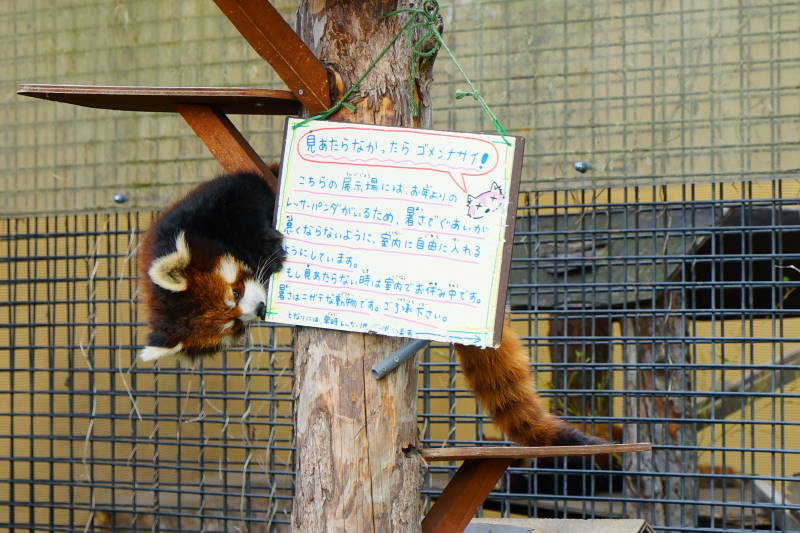 見あたらなかったら ゴメンナサイ!
こちらの展示場には、お年よりの
レッサーパンダがいるため、暑さでぐあいが
悪くならないように、室内に自由に入れる
ようにしています。
もし見あたらない時は室内でお休み中です。
暑さはニガテな動物です。ご了承下さい。
となりには、常時レッサーパ います